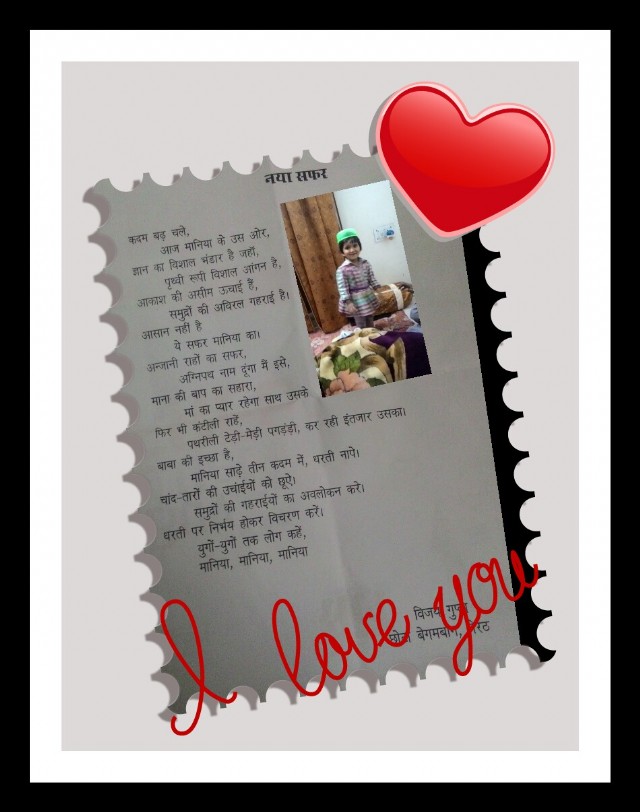 नया सफर
कदम बढ़ चले,
आज मानिया के उस ओर,
ज्ञान का विशाल भंडार है जहाँ,
पृथ्वी रूपी विशाल आंगन है,
आकाश की असीम ऊचाई हैं,
समुद्रों की अविरल गहराई है।
आसान नहीं है
ये सफर मानिया का।
अन्जानी राहों का सफर,
अग्निपथ नाम दूंगा मैं इसे,
माना की बाप का सहारा,
मां का प्यार रहेगा साथ उसके
फिर भी कंटीली राहें,
पथरीली टेड़ी-मेड़ी पगड़ंड़ी, कर रही इंतजार उसका।
बाबा की इच्छा है,
मानिया साढ़े तीन कदम में, धरती नापे।
चांद-तारों की उचांईयों को छूऐ।
समुद्रों की गहराईयों का अवलोकन करे।
धरती पर निर्भय होकर विचरण करें।
युगों-युगों तक लोग कहें,
मानिया, मानिया, मानिया
विजय गुप्ता
बेगमबाग, मेरठ
I love you